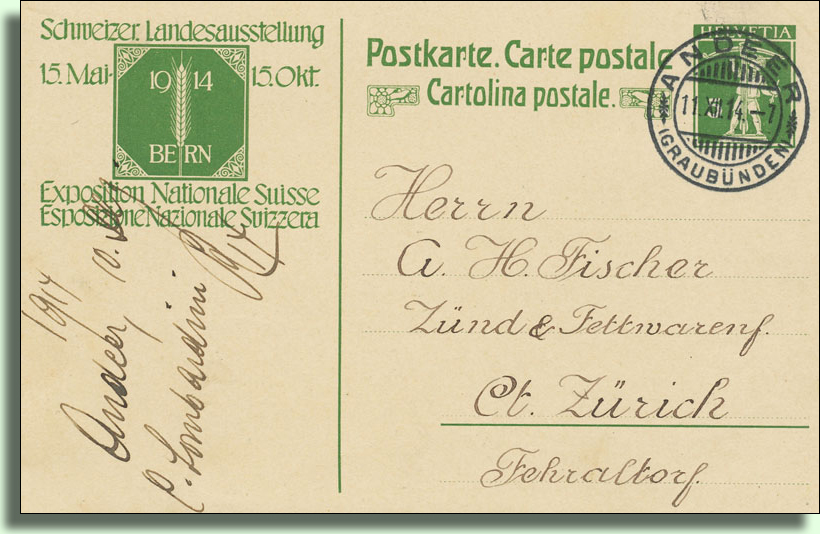 Schweizer. Landesausstellung
15. Mai- 1914 15. Okt.
BERN
Exposition Nationale Suisse
Esposizione Nazionale Svizzera
Postkarte. Carte postale
Cartolina postale.
HELVETIA
ANDEER
11.XII.14.-7
(GRAUBÜNDEN)
Herrn
A. H. Fischer
Zünd & Fettwarenf.
Ct. Zürich
Fehraltorf.
1914
Andeer,
C. Lombardini